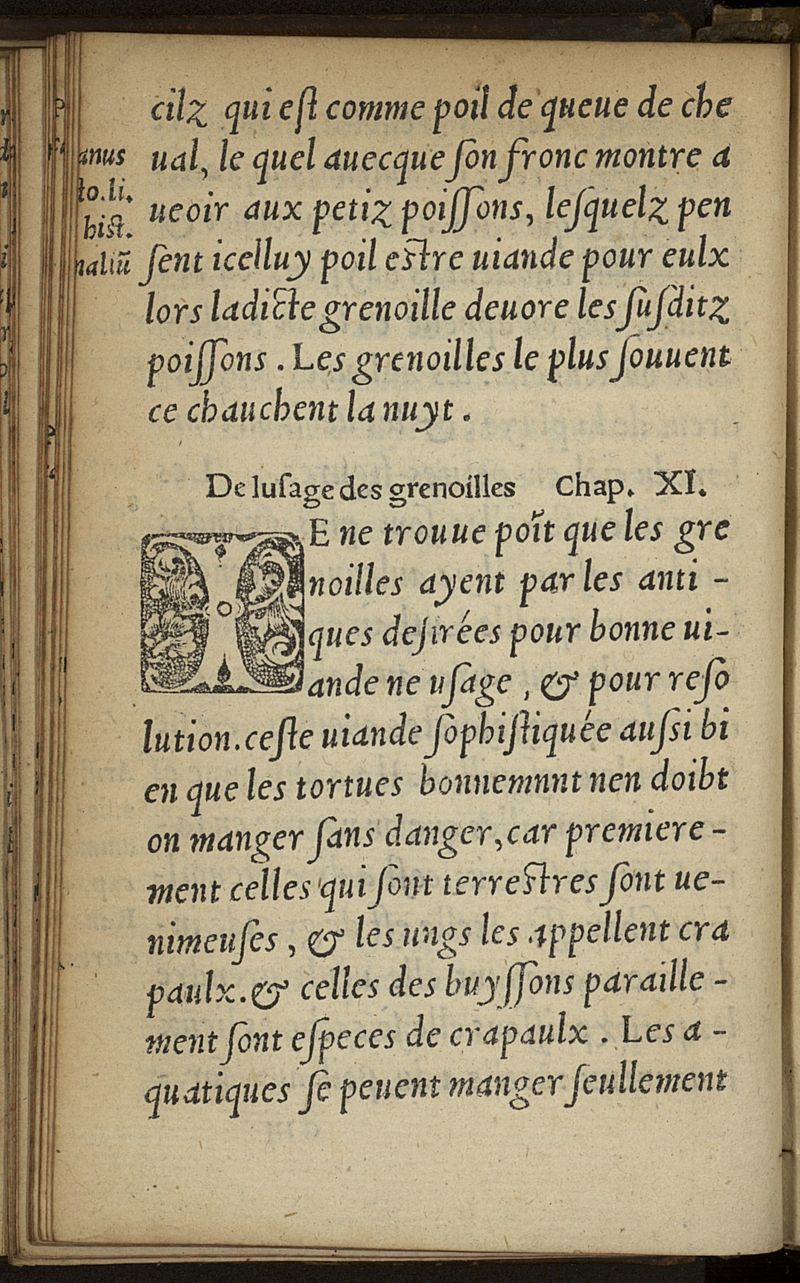 cilz qui eſt comme poil de queue de che
ual, le quel auecque ſon fronc montre a
ueoir aux petiz poiſſons, leſquelz pen
ſent icelluy poil eſtre uiande pour eulx
lors ladicte grenoille deuore les ſuſditz
poiſſons . Les grenoilles le plus ſouuent
ce chauchent la nuyt .
anus
o.li.
hiſt.
naliū
De luſage des grenoilles Chap. XI.
IE ne trouue poĩt que les gre
noilles ayent par les anti -
ques deſirées pour bonne ui-
ande ne uſage , & pour reſo
lution. ceſte uiande ſophiſtiquée auſsi bi
en que les tortues bonnemnnt nen doibt
on manger ſans danger, car premiere -
ment celles qui ſont terreſtres ſont ue-
nimeuſes , & les ungs les appellent cra
paulx. & celles des buyſſons paraille -
ment ſont eſpeces de crapaulx . Les a -
quatiques ſe peuent manger ſeullement